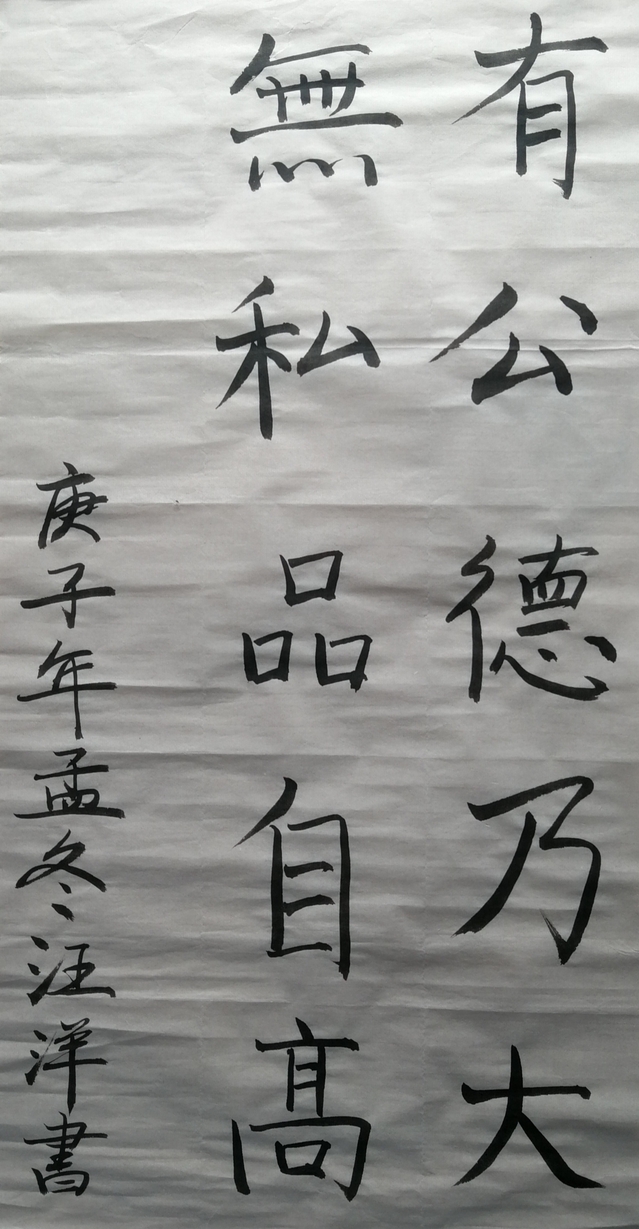 有公德乃大
無私品自高
庚子年孟冬汪洋書